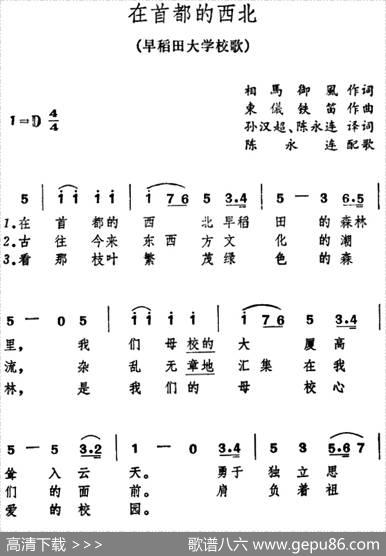 在首都的西北
(早稻田大学校歌)
相馬御風作词
東儀鉄笛作曲
孙汉超、陈永连译词
陈永连配歌
1=D 4/4
5 | i i i i | i 7 6 5 3.4 | 5 5 — 3 | 6.5
1.在首都的西北早稻田的森林
2.古往今来东西方文化的潮
3.看那枝叶繁茂绿色的森
5 — 0 5 | i i i i | i 7 6 5 3.4
里，我们母校的大厦高
流，杂乱无章地汇集在我
林，是我们的母校心
5 — 5 3.2 | 1 — 0 3.4 | 5 3 5 5.6 7
耸入云天。勇于独立思
们的面前。肩负着祖
爱的校园。
高清下载 >>>
歌谱八六 www.gepu86.com